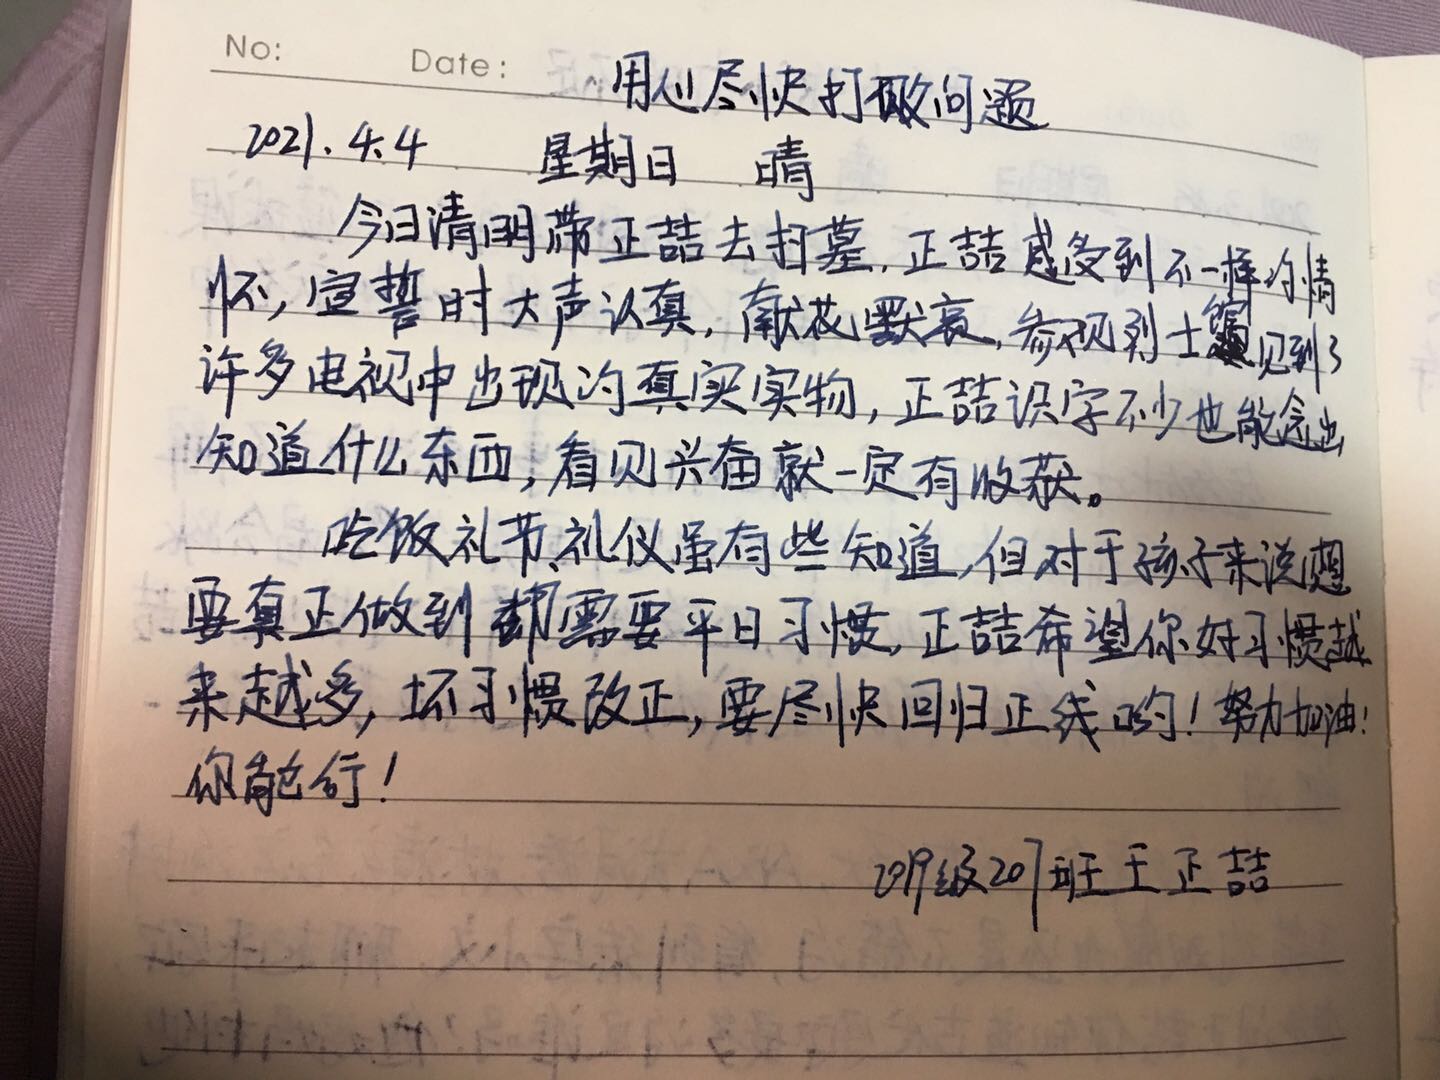 No: Date: 用心尽快打破问题
2021.4.4 星期日 晴
今日清明带正喆去扫墓,正喆感受到不一样的情
怀,宣誓时大声认真,献花默哀,参观烈士馆见到了
许多电视中出现的真实实物,正喆识字不少也能念出
知道什么东西,看见兴奋就一定有收获。
吃饭礼节、礼仪虽有些知道,但对于孩子来说想
要真正做到都需要平日习惯,正喆希望你好习惯越
来越多,坏习惯改正,要尽快回归正线哟!努力加油!
你能行!
2019级207班王正喆